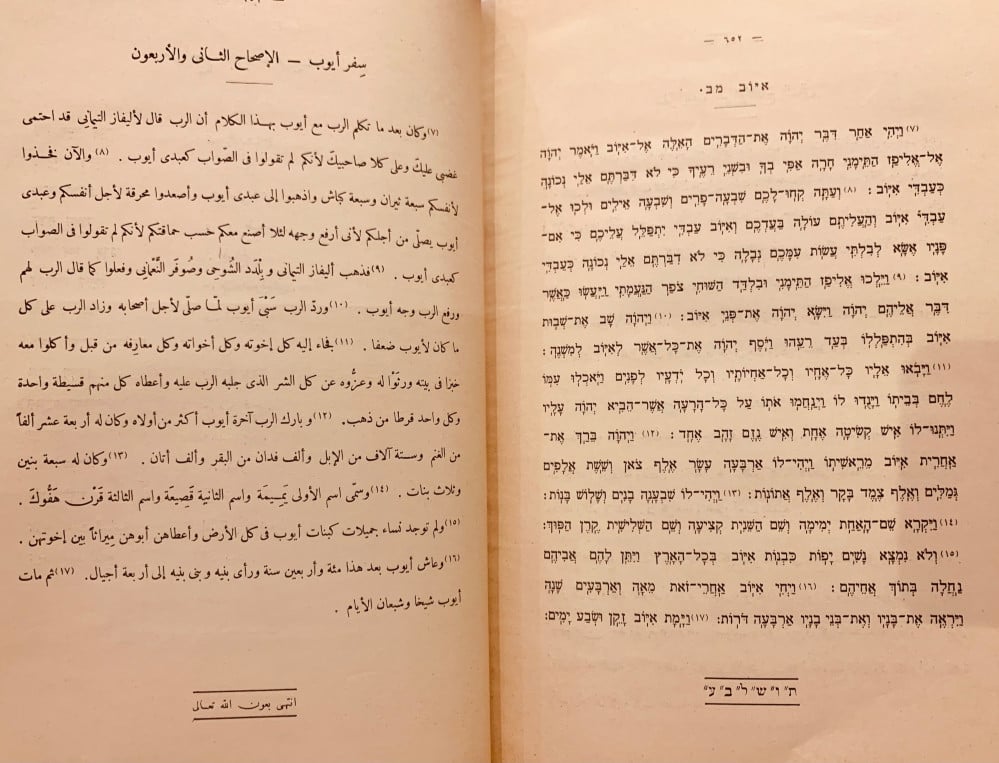 — ٦٥٢ —
איוב מב.
(٧) וַיְהִי אַחַר דִּבֶּר יְהוָֹה אֶת־הַדְּבָרִים הָאֵלֶּה אֶל־אִיּוֹב וַיֹּאמֶר יְהוָֹה
אֶל־אֱלִיפַז הַתֵּימָנִי חָרָה אַפִּי בְךָ וּבִשְׁנֵי רֵעֶיךָ כִּי לֹא דִבַּרְתֶּם אֵלַי נְכוֹנָה
כְּעַבְדִּי אִיּוֹב: (٨) וְעַתָּה קְחוּ־לָכֶם שִׁבְעָה־פָרִים וְשִׁבְעָה אֵילִים וּלְכוּ אֶל־
עַבְדִּי אִיּוֹב וְהַעֲלִיתֶם עוֹלָה בַּעַדְכֶם וְאִיּוֹב עַבְדִּי יִתְפַּלֵּל עֲלֵיכֶם כִּי אִם־
פָּנָיו אֶשָּׂא לְבִלְתִּי עֲשׂוֹת עִמָּכֶם נְבָלָה כִּי לֹא דִבַּרְתֶּם אֵלַי נְכוֹנָה כְּעַבְדִּי
אִיּוֹב: (٩) וַיֵּלְכוּ אֱלִיפַז הַתֵּימָנִי וּבִלְדַּד הַשּׁוּחִי צֹפַר הַנַּעֲמָתִי וַיַּעֲשׂוּ כַּאֲשֶׁר
דִּבֶּר אֲלֵיהֶם יְהוָֹה וַיִּשָּׂא יְהוָֹה אֶת־פְּנֵי אִיּוֹב: (١٠) וַיהוָֹה שָׁב אֶת־שְׁבוּת
אִיּוֹב בְּהִתְפַּלְלוֹ בְּעַד רֵעֵהוּ וַיֹּסֶף יְהוָֹה אֶת־כָּל־אֲשֶׁר לְאִיּוֹב לְמִשְׁנֶה:
(١١) וַיָּבֹאוּ אֵלָיו כָּל־אֶחָיו וְכָל־אַחְיוֹתָיו וְכָל יֹדְעָיו לְפָנִים וַיֹּאכְלוּ עִמּוֹ
לֶחֶם בְּבֵיתוֹ וַיָּנֻדוּ לוֹ וַיְנַחֲמוּ אֹתוֹ עַל כָּל־הָרָעָה אֲשֶׁר־הֵבִיא יְהוָֹה עָלָיו
וַיִּתְּנוּ־לוֹ אִישׁ קְשִׂיטָה אֶחָת וְאִישׁ נֶזֶם זָהָב אֶחָד: (١٢) וַיהוָֹה בֵּרַךְ אֶת־
אַחֲרִית אִיּוֹב מֵרֵאשִׁיתוֹ וַיְהִי־לוֹ אַרְבָּעָה עָשָׂר אֶלֶף צֹאן וְשֵׁשֶׁת אֲלָפִים
גְּמַלִּים וְאֶלֶף צֶמֶד בָּקָר וְאֶלֶף אֲתוֹנוֹת: (١٣) וַיְהִי־לוֹ שִׁבְעָנָה בָנִים וְשָׁלוֹשׁ בָּנוֹת:
(١٤) וַיִּקְרָא שֵׁם־הָאַחַת יְמִימָה וְשֵׁם הַשֵּׁנִית קְצִיעָה וְשֵׁם הַשְּׁלִישִׁית קֶרֶן הַפּוּךְ:
(١٥) וְלֹא נִמְצָא נָשִׁים יָפוֹת כִּבְנוֹת אִיּוֹב בְּכָל־הָאָרֶץ וַיִּתֵּן לָהֶם אֲבִיהֶם
נַחֲלָה בְּתוֹךְ אֲחֵיהֶם: (١٦) וַיְחִי אִיּוֹב אַחֲרֵי־זֹאת מֵאָה וְאַרְבָּעִים שָׁנָה
וַיִּרְאֶה אֶת־בָּנָיו וְאֶת־בְּנֵי בָנָיו אַרְבָּעָה דֹּרוֹת: (١٧) וַיָּמָת אִיּוֹב זָקֵן וּשְׂבַע יָמִים:
ת״ו״ש״ל״ב״ע״
سِفر أيوب – الإصحاح الثانى والأربعون
(٧) وكان بعد ما تكلم الرب مع أيوب بهذا الكلام أن الرب قال لأليفاز التيمانِي قد احتمى
غضبي عليكَ وعلى كلا صاحبيكَ لأنكم لم تقولوا فى الصّواب كعبدى أيوب . (٨) والآن نخذوا
لأنفسكم سبعة ثيران وسبعة كباش واذهبوا إلى عبدى أيوب وأصعدوا محرقة لأجل أنفسكم وعبدى
أيوب يصلّى من أجلكم لأنى أرفع وجهه لئلا أصنع معكم حسب حماقتكم لأنكم لم تقولوا فى الصواب
كعبدى أيوب . (٩) فذهب أليفاز التيمانى و بِلْدَد الشُّوحِى وصُوفَر النَّعْمَانِى وفعلوا كما قال الرب لهم
ورفع الرب وجه أيوب . (١٠) وردّ الرب سَبْىَ أيوب لمّا صلّى لأجل أصحابه وزاد الرب على كل
ما كان لأيوب ضعفا . (١١) فجاء إليه كل إخوته وكل أخواته وكل معارفه من قبل وأكلوا معه
خبزا فى بيته ورثَوْا له وعزَّوه عن كل الشر الذى جلبه الرب عليه وأعطاه كل منهم قسيطة واحدة
وكل واحد قرطا من ذهب . (١٢) و بارك الرب آخرة أيوب أكثر من أولاه وكان له أربعة عشر ألفاً
من الغنم وستة آلاف من الإبل وألف فدان من البقر وألف أتان . (١٣) وكان له سبعة بنين
وثلاث بنات . (١٤) وسمّى اسم الأولى يَمِيمَة واسم الثانية قَصِيعَة واسم الثالثة قَرْن هَفُّوكَ .
(١٥) ولم توجد نساء جميلات كبنات أيوب فى كل الأرض وأعطاهن أبوهن مِيراثاً بين إخوتهن .
(١٦) وعاش أيوب بعد هذا مئة وأر بعين سنة ورأى بنيه و بنى بنيه إلى أر بعة أجيال . (١٧) ثم مات
أيوب شيخا وشبعان الأيام .
انتهى بعون الله تعالى